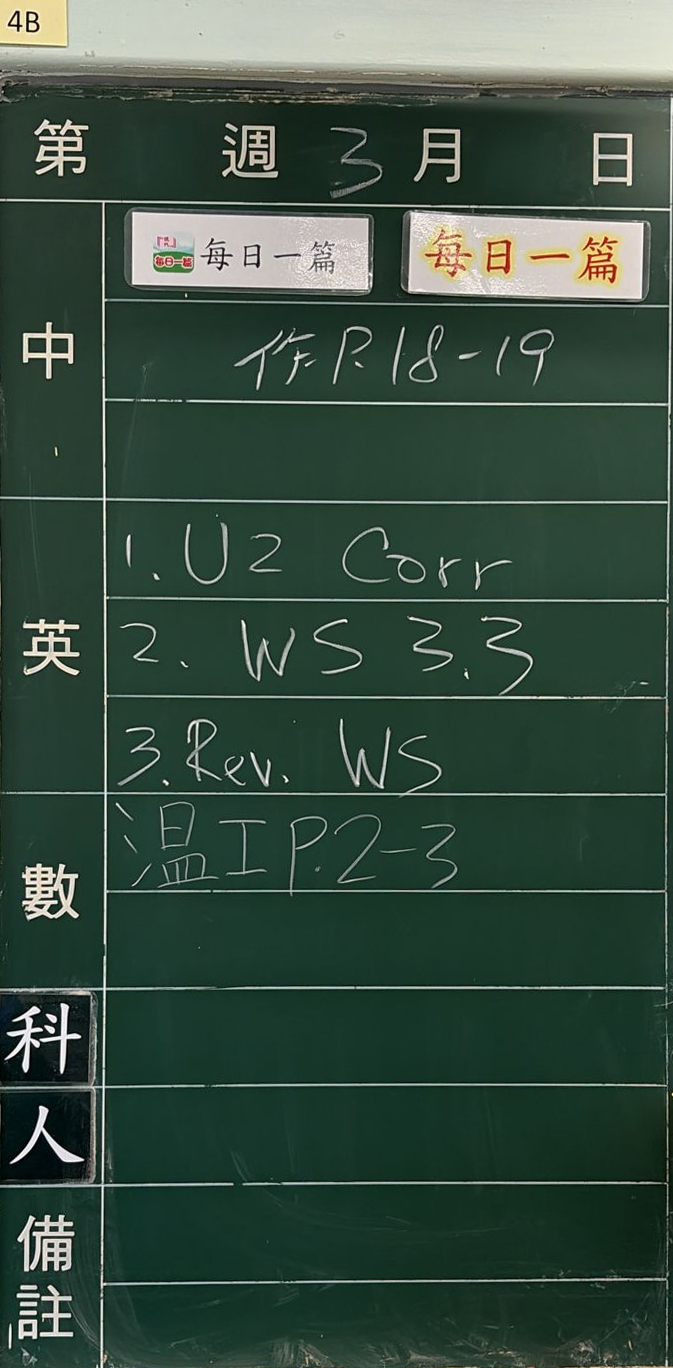 4B
第 週 3 月 日
每日一篇 每日一篇 每日一篇
中
作 P.18-19
英
1. U2 Corr
2. WS 3.3
3. Rev. WS
數
温工 P.2-3
科
人
備
註